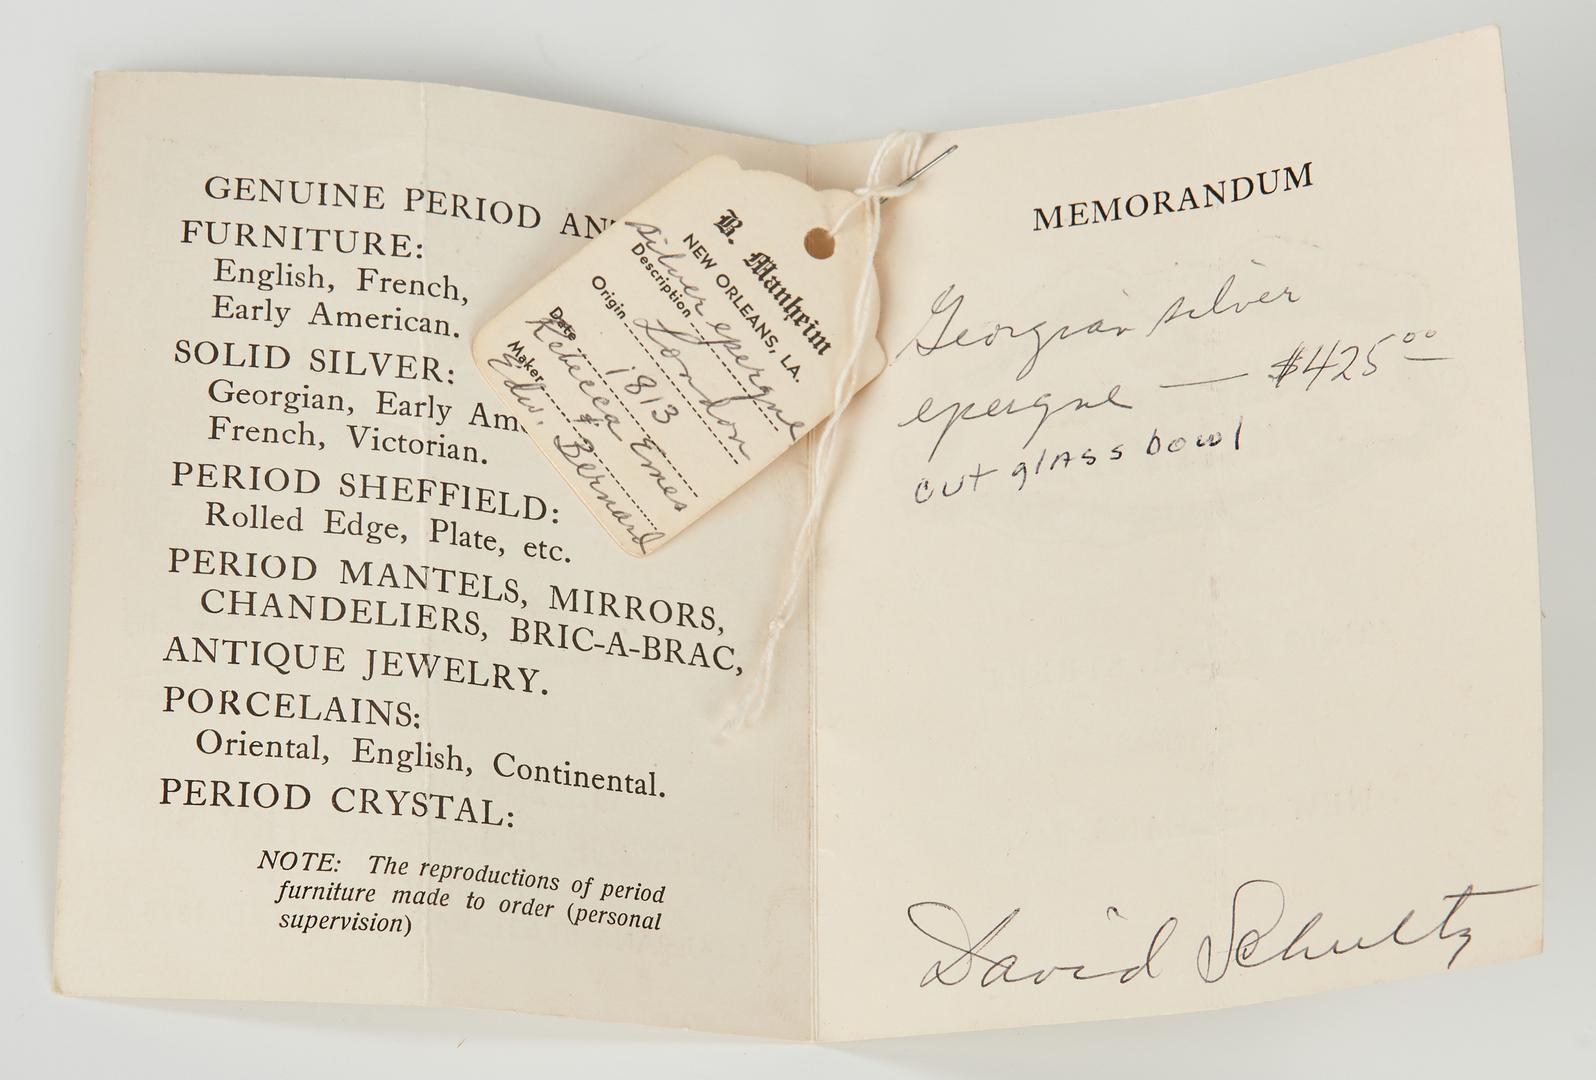 GENUINE PERIOD AN
FURNITURE:
English, French,
Early American.
SOLID SILVER:
Georgian, Early Am
French, Victorian.
PERIOD SHEFFIELD:
Rolled Edge, Plate, etc.
PERIOD MANTELS, MIRRORS,
CHANDELIERS, BRIC-A-BRAC,
ANTIQUE JEWELRY.
PORCELAINS:
Oriental, English, Continental.
PERIOD CRYSTAL:
NOTE: The reproductions of period
furniture made to order (personal
supervision)
B. Manheim
NEW ORLEANS, LA.
silver epergne
Description
Origin London
Date 1813
Rebecca Emes
Maker &
Edw. Bernard
MEMORANDUM
Georgian silver
epergne — $425.00
cut glass bowl
David Schultz